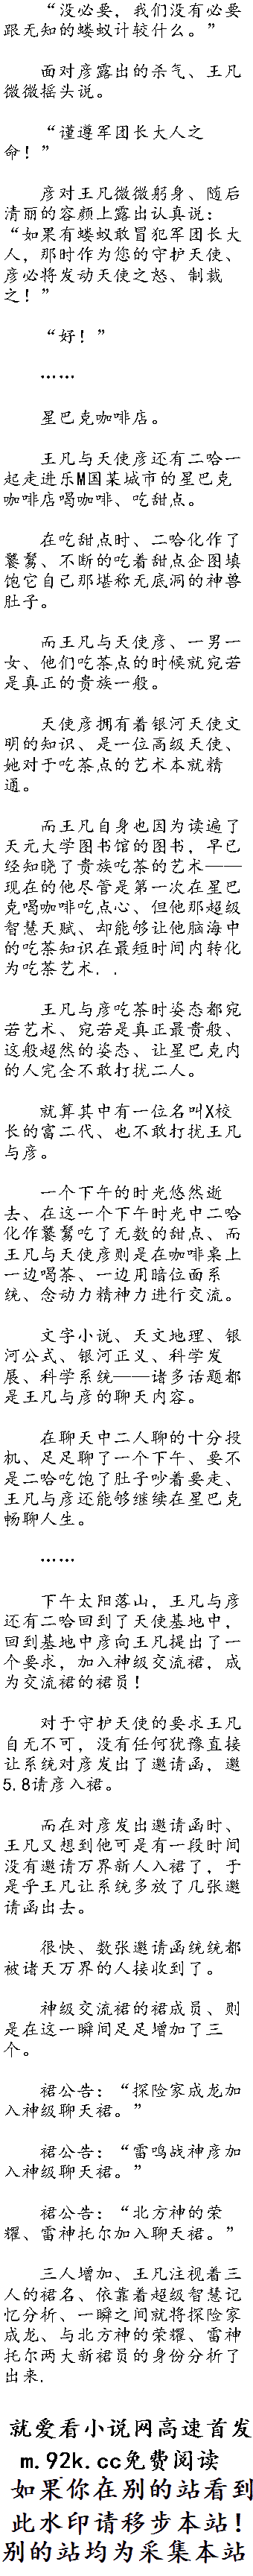 “没必要，我们没有必要
跟无知的蝼蚁计较什么。”
面对彦露出的杀气、王凡
微微摇头说。
“谨遵军团长大人之
命！”
彦对王凡微微躬身、随后
清丽的容颜上露出认真说：
“如果有蝼蚁敢冒犯军团长大
人，那时作为您的守护天使、
彦必将发动天使之怒、制裁
之！”
“好！”
……
星巴克咖啡店。
王凡与天使彦还有二哈一
起走进乐M国某城市的星巴克
咖啡店喝咖啡、吃甜点。
在吃甜点时、二哈化作了
饕餮、不断的吃着甜点企图填
饱它自己那堪称无底洞的神兽
肚子。
而王凡与天使彦、一男一
女、他们吃茶点的时候就宛若
是真正的贵族一般。
天使彦拥有着银河天使文
明的知识、是一位高级天使、
她对于吃茶点的艺术本就精
通。
而王凡自身也因为读遍了
天元大学图书馆的图书，早已
经知晓了贵族吃茶的艺术——
现在的他尽管是第一次在星巴
克喝咖啡吃点心、但他那超级
智慧天赋、却能够让他脑海中
的吃茶知识在最短时间内转化
为吃茶艺术..
王凡与彦吃茶时姿态都宛
若艺术、宛若是真正最贵般、
这般超然的姿态、让星巴克内
的人完全不敢打扰二人。
就算其中有一位名叫X校
长的富二代、也不敢打扰王凡
与彦。
一个下午的时光悠然逝
去、在这一个下午时光中二哈
化作饕餮吃了无数的甜点、而
王凡与天使彦则是在咖啡桌上
一边喝茶、一边用暗位面系
统、念动力精神力进行交流。
文字小说、天文地理、银
河公式、银河正义、科学发
展、科学系统——诸多话题都
是王凡与彦的聊天内容。
在聊天中二人聊的十分投
机、足足聊了一个下午、要不
是二哈吃饱了肚子吵着要走、
王凡与彦还能够继续在星巴克
畅聊人生。
……
下午太阳落山，王凡与彦
还有二哈回到了天使基地中，
回到基地中彦向王凡提出了一
个要求，加入神级交流裙，成
为交流裙的裙员！
对于守护天使的要求王凡
自无不可，没有任何犹豫直接
让系统对彦发出了邀请函，邀
5.8请彦入裙。
而在对彦发出邀请函时、
王凡又想到他可是有一段时间
没有邀请万界新人入裙了，于
是乎王凡让系统多放了几张邀
请函出去。
很快、数张邀请函统统都
被诸天万界的人接收到了。
神级交流裙的裙成员、则
是在这一瞬间足足增加了三
个。
裙公告：“探险家成龙加
入神级聊天裙。”
裙公告：“雷鸣战神彦加
入神级聊天裙。”
裙公告：“北方神的荣
耀、雷神托尔加入聊天裙。”
三人增加、王凡注视着三
人的裙名、依靠着超级智慧记
忆分析、一瞬之间就将探险家
成龙、与北方神的荣耀、雷神
托尔两大新裙员的身份分析了
出来.
就爱看小说网高速首发
m.92k.cc免费阅读
如果你在别的站看到
此水印请移步本站！
别的站均为采集本站